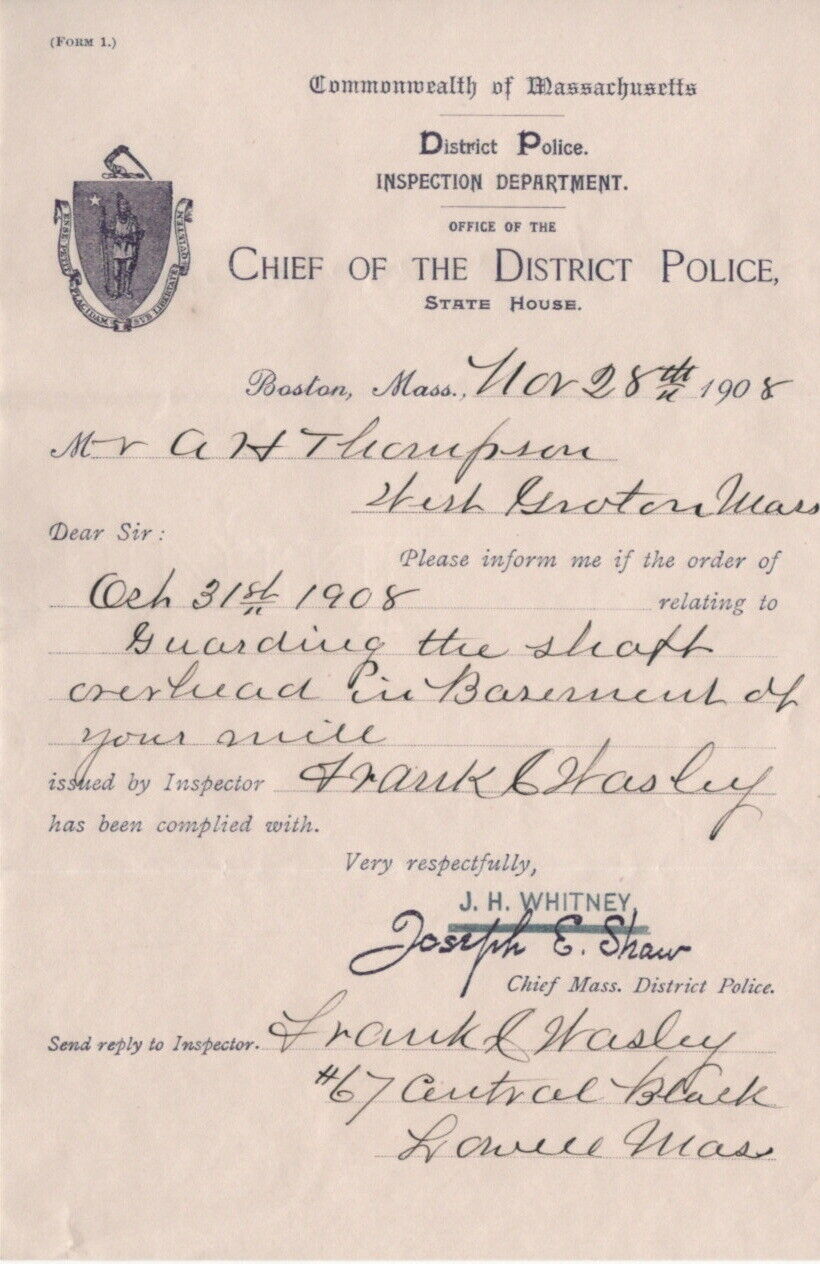 (FORM 1.)
Commonwealth of Massachusetts
District Police.
INSPECTION DEPARTMENT.
OFFICE OF THE
CHIEF OF THE DISTRICT POLICE,
STATE HOUSE.
ENSE PETIT PLACIDAM SUB LIBERTATE QUIETEM
Boston, Mass., Nov 28th 1908
Mr A H Thompson
West Groton Mass
Dear Sir:
Please inform me if the order of
Oct 31st 1908 relating to
Guarding the shaft
overhead in Basement of
your mill
issued by Inspector Frank C Wasley
has been complied with.
Very respectfully,
J. H. WHITNEY,
Joseph E. Shaw
Chief Mass. District Police.
Send reply to Inspector. Frank C Wasley
#67 Central Block
Lowell Mas